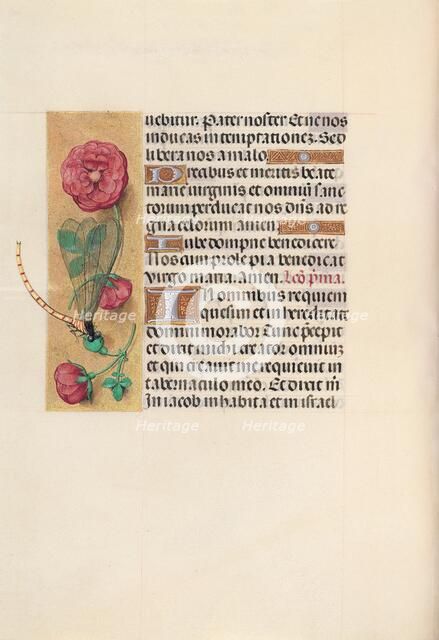 uebitur. Pater noster Et ne nos
inducas in temptationez. Sed
libera nos a malo.
Precibus et meritis beate
marie virginis et omniū sanc
torum perducat nos dn̄s ad re
gna celorum. Amen.
Iube dompne benedicere
Nos cum prole pia benedicat
Virgo maria. Amen. Lcō p̄ma.
In omnibus requiem
quesiui et in hereditate
domini morabor Tunc p̄cepit
et dixit michi creator omniuz
et qui creauit me requieuit in
tabernaculo meo. Et dixit m̄
In iacob inhabita et in israel
Heritage
Heritage
Heritage
Heritage
Heritage
Heritage